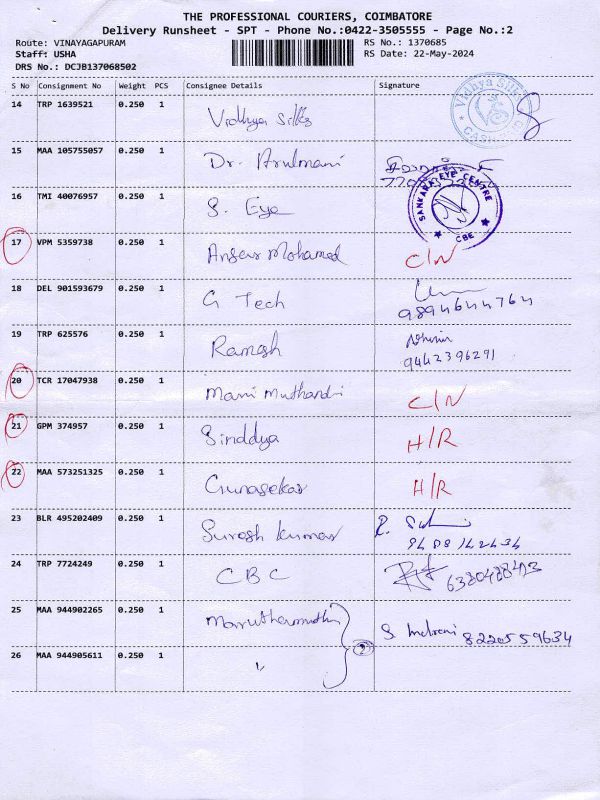 THE PROFESSIONAL COURIERS, COIMBATORE
Delivery Runsheet - SPT - Phone No.:0422-3505555 - Page No.:2
Route: VINAYAGAPURAM RS No.: 1370685
Staff: USHA RS Date: 22-May-2024
DRS No.: DCJB137068502
S No Consignment No Weight PCS Consignee Details Signature
14 TRP 1639521 0.250 1 Vidhya Silks Vidhya Silks
15 MAA 105755057 0.250 1 Dr. Arulmani
16 TMI 40076957 0.250 1 S. Eye SANKARA EYE CENTRE CBE
17 VPM 5359738 0.250 1 Ansar Mohamed C/N
18 DEL 901593679 0.250 1 G Tech 9894644764
19 TRP 625576 0.250 1 Ramesh 9442396291
20 TCR 17047938 0.250 1 Mani Muthandi C/N
21 GPM 374957 0.250 1 Sinddya H/R
22 MAA 573251325 0.250 1 Gunasekar H/R
23 BLR 495202409 0.250 1 Suresh kumar
24 TRP 7724249 0.250 1 CBC
25 MAA 944902265 0.250 1 2 8220559634
26 MAA 944905611 0.250 1 "